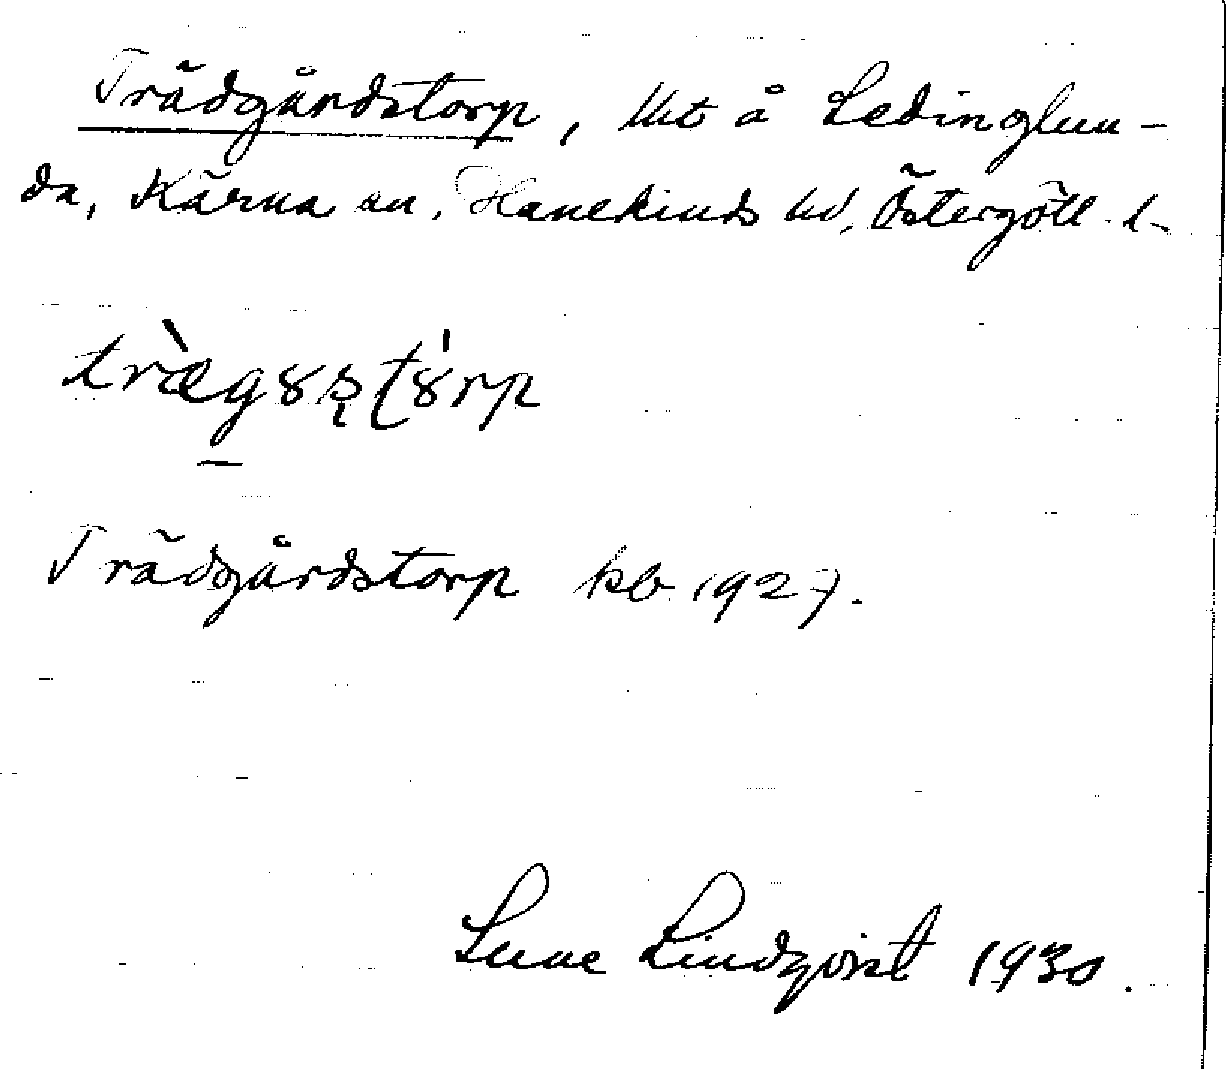 Trädgårdstorp, lht å Ledinglun-
da, Kärna sn, Hanekinds hd, Östergötl. l.
træ̀g8ʂʈ8́rp
Trädgårdstorp kb 1927.
Sune Lindqvist 1930.